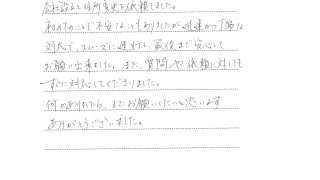 会社設立と住所変更を依頼しました。
初めてのことで不安なこともありましたが迅速かつ丁寧な
対応で、スムーズに進行し、最後まで安心して
お願い出来ました。また、質問や依頼に対しても
すぐに対応してくださりました。
何かありましたら、またお願いしたいと思います
ありがとうございました。